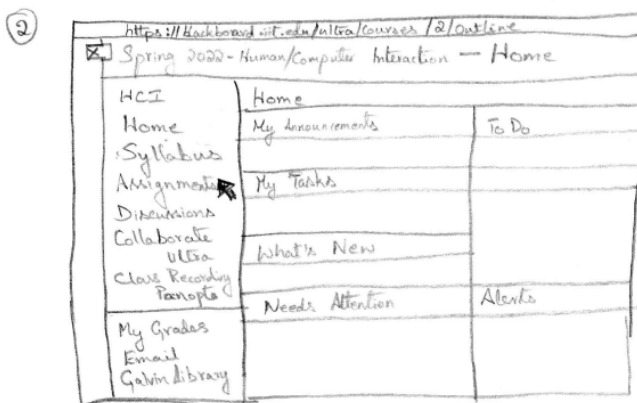 2
https://blackboard.iit.edu/ultra/courses/2/outline
Spring 2022 - Human/Computer Interaction — Home
HCI
Home
Syllabus
Assignments
Discussions
Collaborate
Ultra
Class Recording
Panopto
My Grades
Email
Galvin Library
Home
My Announcements
To Do
My Tasks
What's New
Needs Attention
Alerts